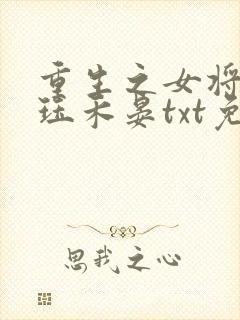 重生之女将
珏禾晏txt免
思我之心